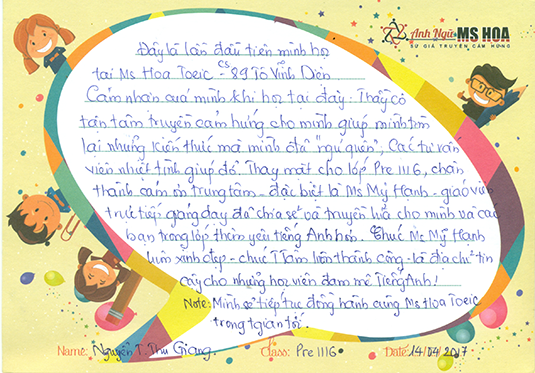 Anh Ngữ MS HOA
SỨ GIẢ TRUYỀN CẢM HỨNG
Đây là lần đầu tiên mình học
tại Ms Hoa Toeic - CS 89 Tô Vĩnh Diện
Cảm nhận của mình khi học tại đây. Thầy cô
tận tâm truyền cảm hứng cho mình giúp mình tìm
lại những kiến thức mà mình đã "ngủ quên", Các tư vấn
viên nhiệt tình giúp đỡ. Thay mặt cho lớp Pre 1116, chân
thành cảm ơn trung tâm - đặc biệt là Ms Mỹ Hạnh - giáo viên
trực tiếp giảng dạy đã chia sẻ và truyền lửa cho mình và các
bạn trong lớp thêm yêu tiếng Anh hơn. Chúc Ms Mỹ Hạnh
luôn xinh đẹp - chúc TTâm luôn thành công - là địa chỉ tin
cậy cho những học viên đam mê Tiếng Anh!
Note: Mình sẽ tiếp tục đồng hành cùng Ms Hoa Toeic
trong tgian tới.
Name: Nguyễn T. Thu Giang. Class: Pre 1116 Date: 14/04/2017